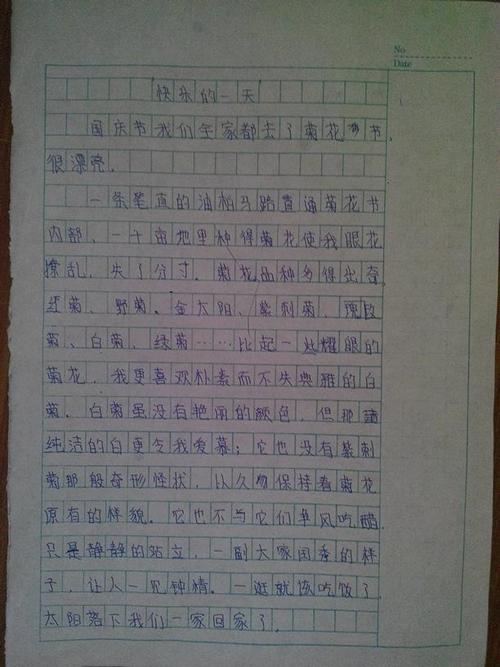 No
Date
快乐的一天
国庆节我们全家都去了菊花节,
很漂亮。
一条笔直的油柏马路直通菊花节
内部、一十亩地里种得菊花使我眼花
撩乱,失了分寸。菊花品种多得出奇
红菊、野菊。金太阳、紫刺菊、瑰玫
菊、白菊、绿菊……比起一些耀眼的
菊花,我更喜欢朴素而不失典雅的白
菊。白菊虽没有艳丽的颜色,但那
纯洁的白更令我爱慕;它也没有紫刺
菊那般奇形怪状,从久勿保持着菊花
原有的样貌。它也不与它们争风吃醋
只是静静的站立,一副大家闺秀的样
子,让人一见钟情。一逛就该吃饭了
太阳落下我们一家回家了。